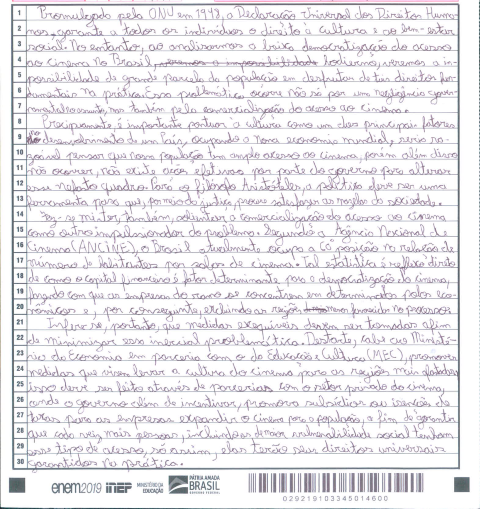 1 Promulgada pela ONU em 1948, a Declaração Universal dos Direitos Huma-
2 nos, garante a todos os indivíduos o direito à cultura e ao bem-estar
3 social. No entanto, ao analisarmos a baixa democratização do acesso
4 ao cinema no Brasil, hodierno, vemos a im-
5 possibilidade de grande parcela da população em desfrutar de tais direitos fun-
6 damentais na prática. Essa problemática ocorre não só por um negligência gover-
7 namental ao assunto, mas também pela comercialização do acesso ao cinema.
8 Precipuamente é importante pontuar a cultura como um dos principais fatores
9 desenvolvimento de um país, ocupando a nona economia mundial, seria ra-
10 zoável pensar que nossa população tem amplo acesso ao cinema, porém além disso
11 não ocorrer, não existe ações efetivas por parte do governo para alterar
12 esse nefasto quadro. Para o filósofo Aristóteles, a política deve ser uma
13 ferramenta para que, por meio da justiça, procure satisfazer as mazelas da sociedade.
14 Faz-se mister, também, salientar a comercialização do acesso ao cinema
15 como outro impulsionador do problema. Segundo a Agência Nacional de
16 Cinema (ANCINE), o Brasil atualmente ocupa a 60ª posição na relação de
17 número de habitantes por salas de cinema. Tal estatística é reflexo direto
18 de como o capital financeiro é fator determinante para a democratização do cinema,
19 fazendo com que as empresas do ramo se concentrem em determinados polos eco-
20 nômicos e, por conseguinte, excluindo as regiões menos favorecidas no processo.
21 Infere-se, portanto, que medidas exequíveis devem ser tomadas afim
22 de minimizar essa inercial problemática. Destarte, cabe ao Ministé-
23 rio da Economia em parceria com o da Educação e Cultura (MEC), promover
24 medidas que visem levar a cultura do cinema para as regiões mais afetadas,
25 isso deve ser feito através de parcerias com o setor privado do cinema,
26 onde o governo além de incentivar, promova subsídios ou isenções de
27 taxas para as empresas expandir o cinema para a população, a fim de garantir
28 que cada vez mais pessoas, incluindo as de maior vulnerabilidade social tenham
29 esse tipo de acesso, só assim, elas terão seus direitos universais
30 garantidos na prática.
enem2019 INEP MINISTÉRIO DA EDUCAÇÃO PÁTRIA AMADA BRASIL GOVERNO FEDERAL
029219103345014600